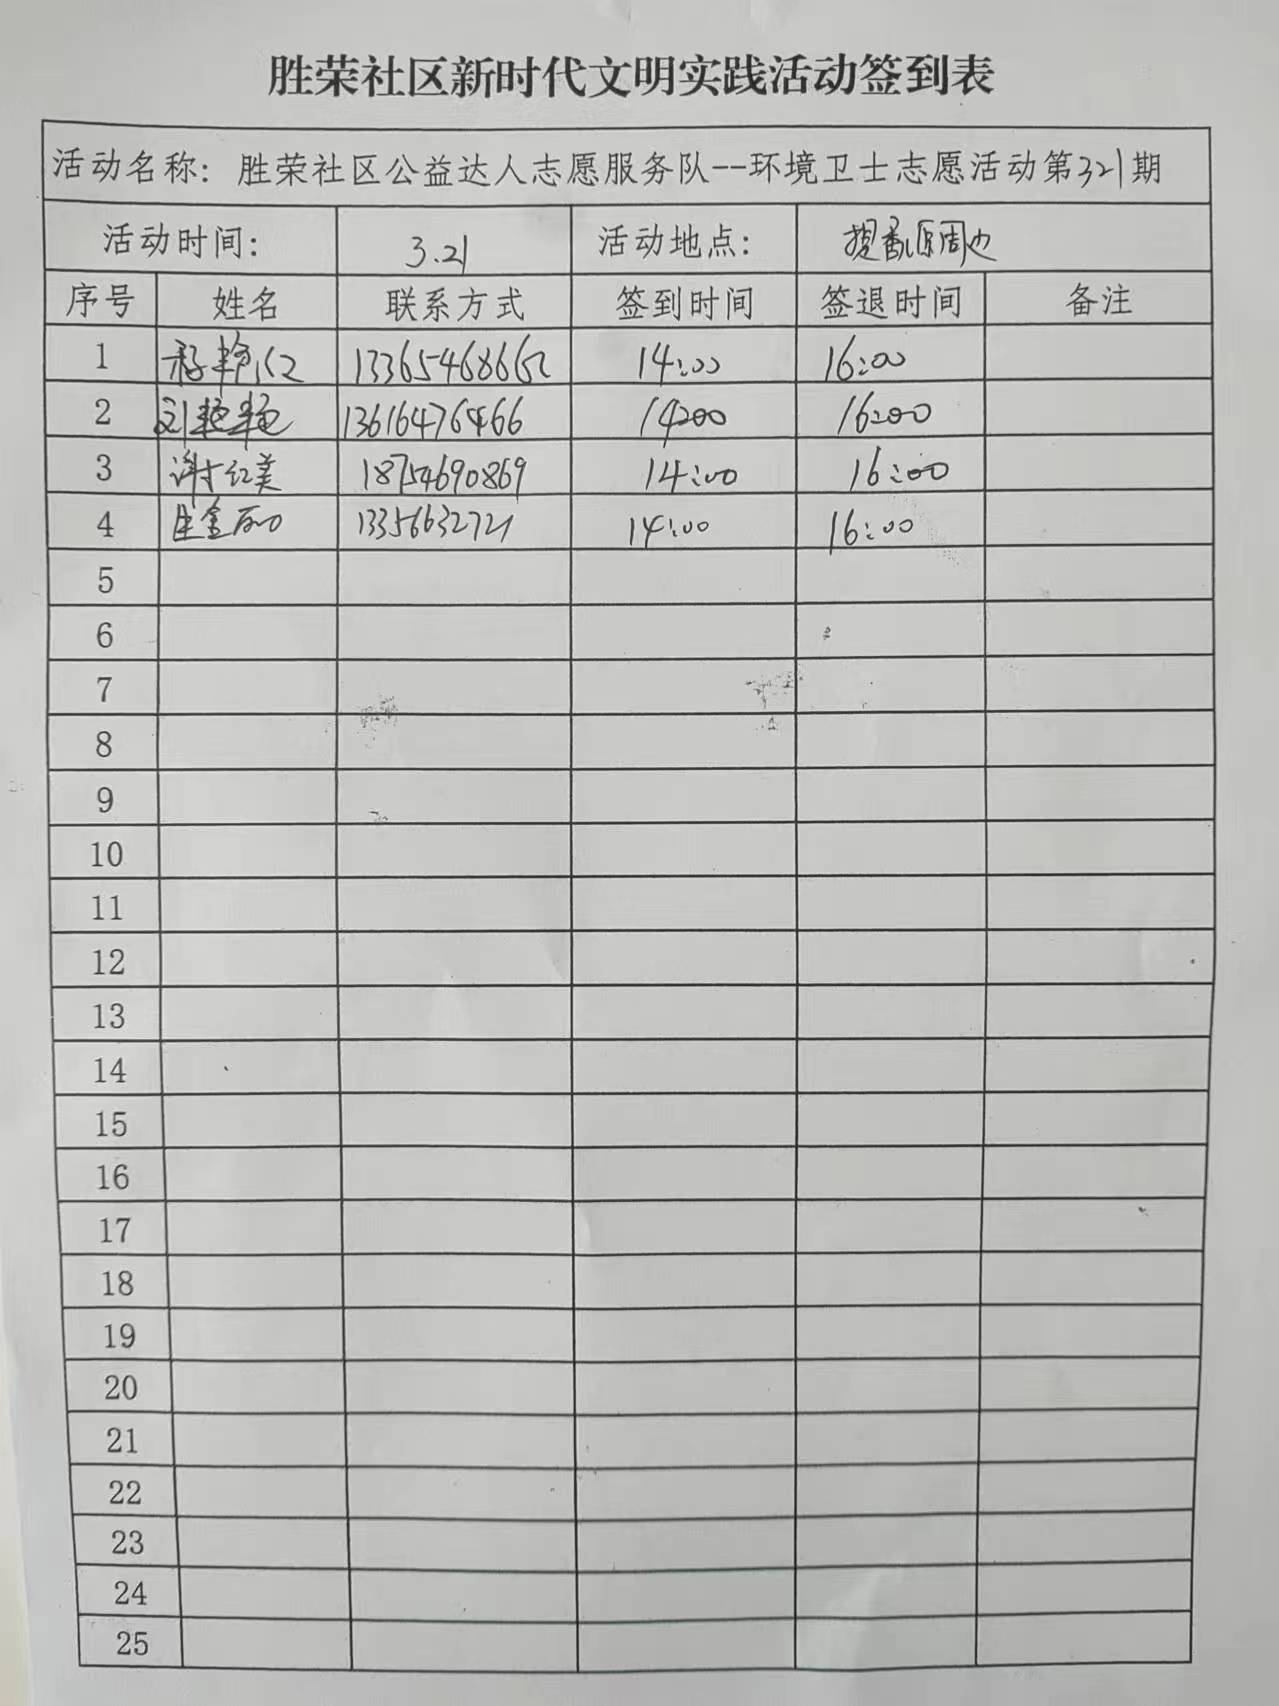 胜荣社区新时代文明实践活动签到表
活动名称：胜荣社区公益达人志愿服务队--环境卫士志愿活动第321期
活动时间： 3.21 活动地点： 周边
序号 姓名 联系方式 签到时间 签退时间 备注
1 14:00 16:00
2 刘艳艳 13616476466 14:00 16:00
3 谢红美 18754690869 14:00 16:00
4 13356632721 14:00 16:00
5
6
7
8
9
10
11
12
13
14
15
16
17
18
19
20
21
22
23
24
25